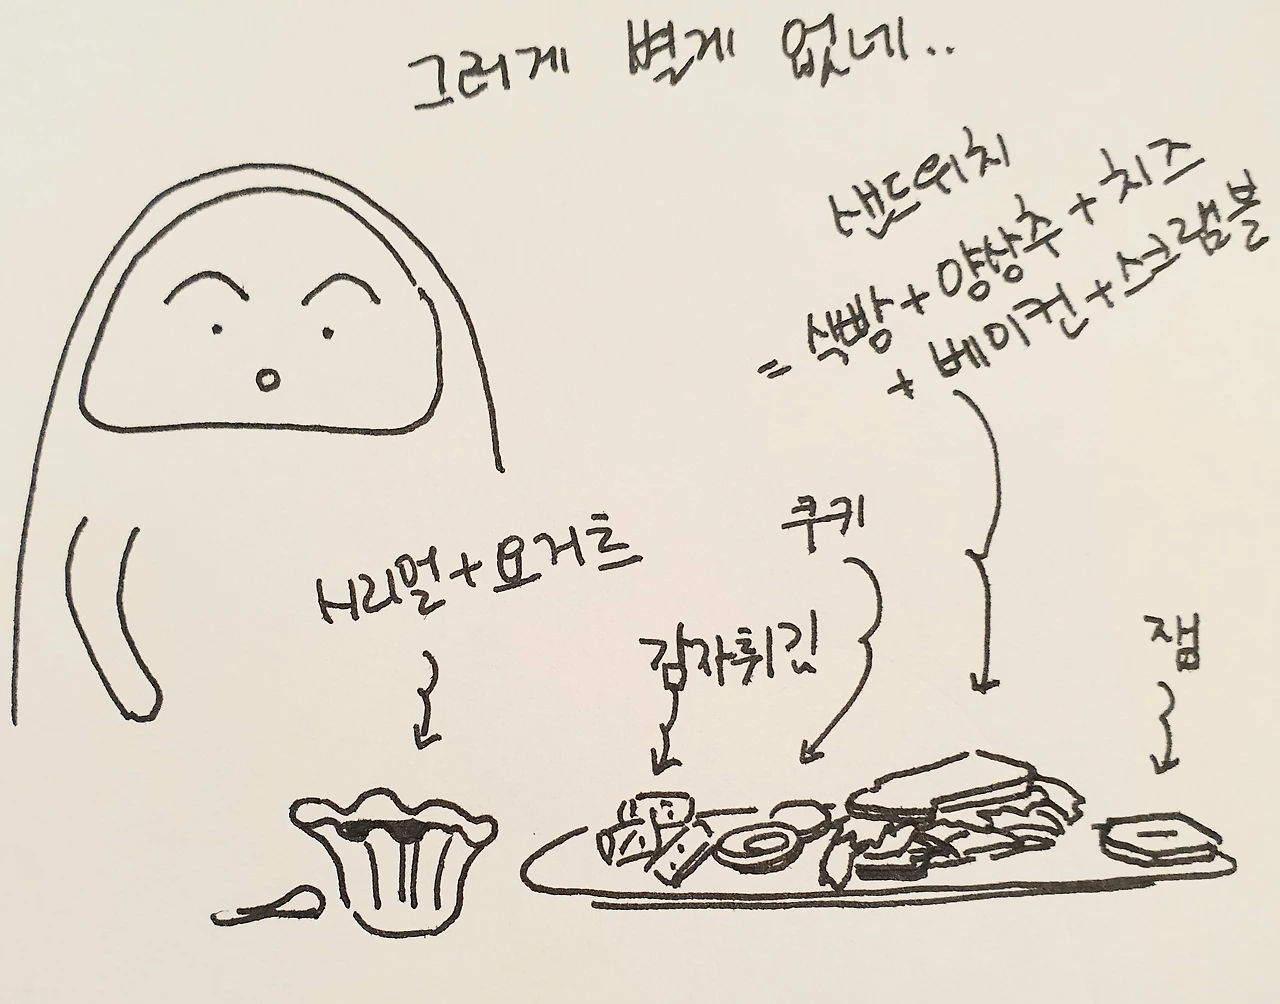 그러게 별게 없네..
샌드위치
= 식빵 + 양상추 + 치즈
+ 베이컨 + 스크램블
쿠키
시리얼 + 요거트
감자튀김
잼